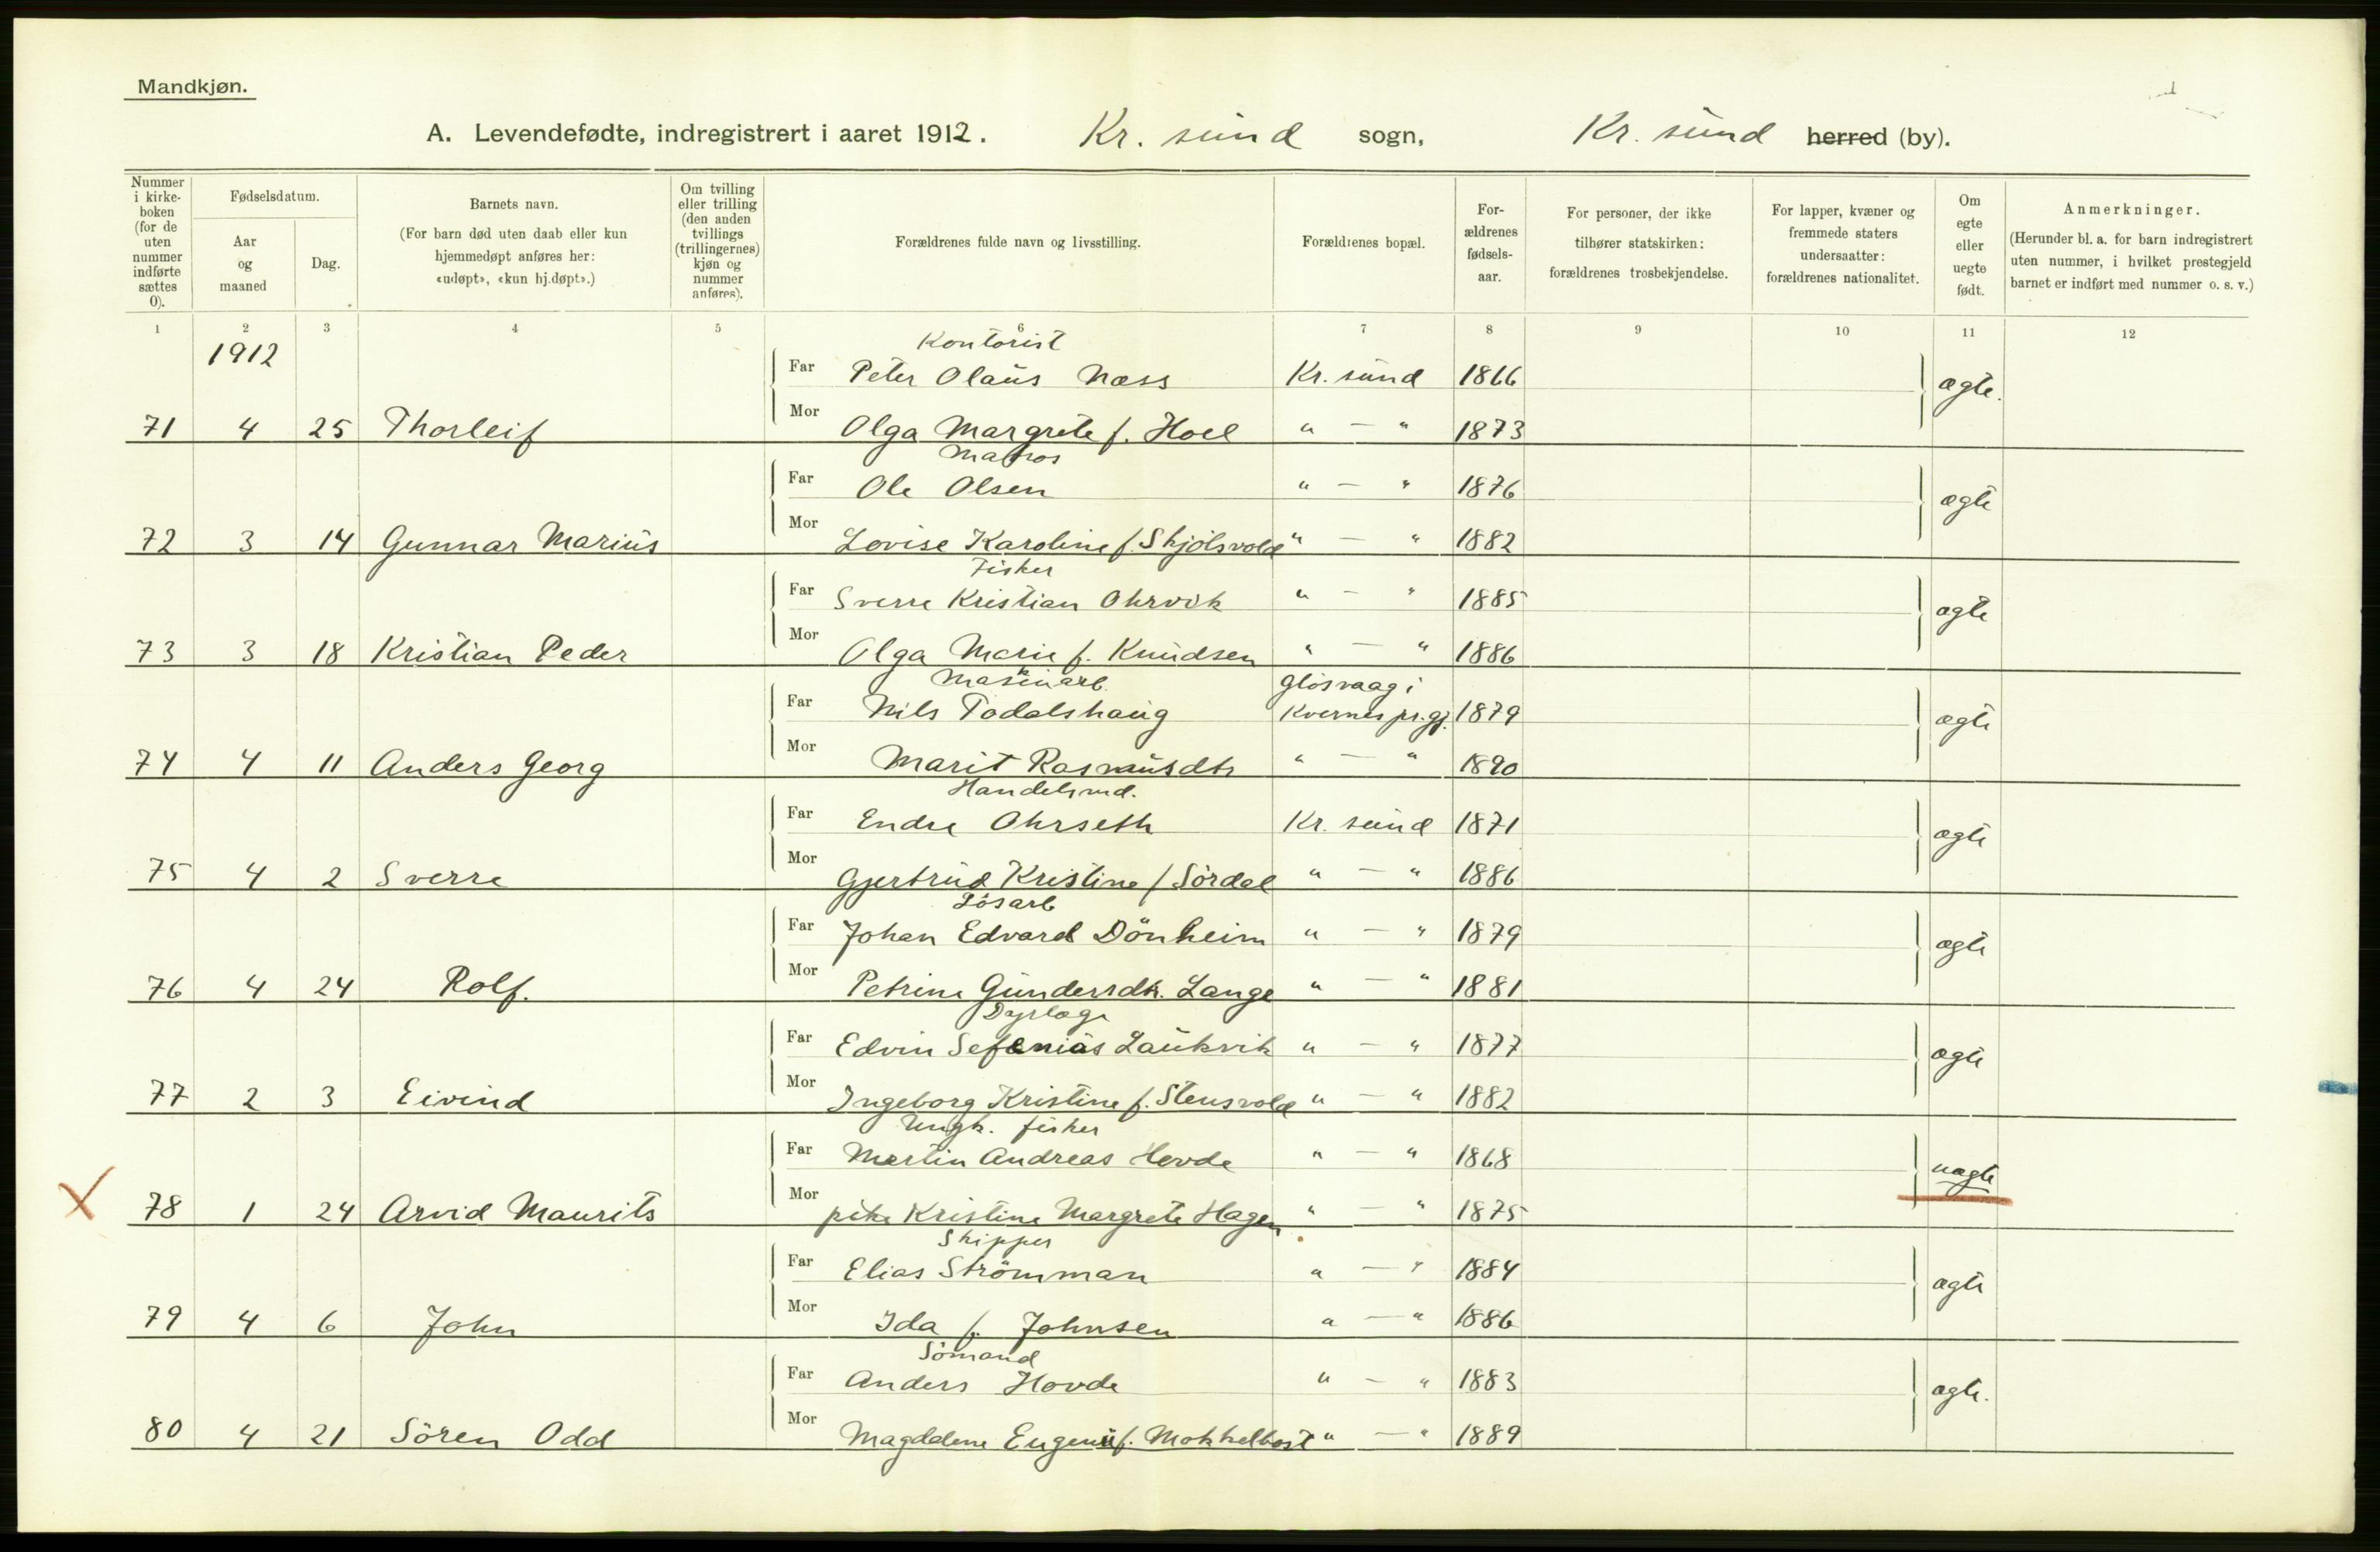 Mandkjøn.
A. Levendefødte, indregistrert i aaret 1912. Kr. sund sogn, Kr. sund herred (by).
Nummer i kirkeboken (for de uten nummer indførte sættes 0).
Fødselsdatum.
Aar og maaned
Dag.
Barnets navn.
(For barn død uten daab eller kun hjemmedøpt anføres her: «udøpt», «kun hj.døpt».)
Om tvilling eller trilling (den anden tvillings (trillingernes) kjøn og nummer anføres).
Forældrenes fulde navn og livsstilling.
Forældrenes bopæl.
Forældrenes fødselsaar.
For personer, der ikke tilhører statskirken: forældrenes trosbekjendelse.
For lapper, kvæner og fremmede staters undersaatter: forældrenes nationalitet.
Om egte eller uegte født.
Anmerkninger.
(Herunder bl. a. for barn indregistrert uten nummer, i hvilket prestegjeld barnet er indført med nummer o. s. v.)
1 2 3 4 5 6 7 8 9 10 11 12
1912
Kontorist
Far Peter Olaus Næss Kr. sund 1866 ægte.
71 4 25 Thorleif Mor Olga Margrete f. Hoel " — " 1873
Matros
Far Ole Olsen " — " 1876 ægte
72 3 14 Gunnar Marius Mor Lovise Karoline f. Skjölsvold " — " 1882
Fisker
Far Sverre Kristian Ohrvik " — " 1885 ægte
73 3 18 Kristian Peder Mor Olga Marie f. Knudsen " — " 1886
Maskinarb. Glosvaag i
Far Nils Todalshaug Kvernes pr.gj. 1879 ægte
74 4 11 Anders Georg Mor Marit Rasmusdtr " — " 1890
Handelsmd.
Far Endre Ohrseth Kr. sund 1871 ægte
75 4 2 Sverre Mor Gjertrud Kristine f Sördal " — " 1886
Lösarb
Far Johan Edvard Dönheim " — " 1879 ægte
76 4 24 Rolf. Mor Petrine Gundersdtr. Lange " — " 1881
Dyrlæge
Far Edvin Sefanias Laukvik " — " 1877 ægte
77 2 3 Eivind Mor Ingeborg Kristine f. Stensvold " — " 1882
Ungk. fisker
Far Martin Andreas Hovde " — " 1868 uægte
78 1 24 Arvid Maurits Mor pike Kristine Margrete Hagen " — " 1875
Skipper
Far Elias Strömman " — " 1884 ægte
79 4 6 John Mor Ida f. Johnsen " — " 1886
Sömand
Far Anders Hovde " — " 1883 ægte.
80 4 21 Sören Odd Mor Magdalene Eugenie f. Mokkelbost " — " 1889